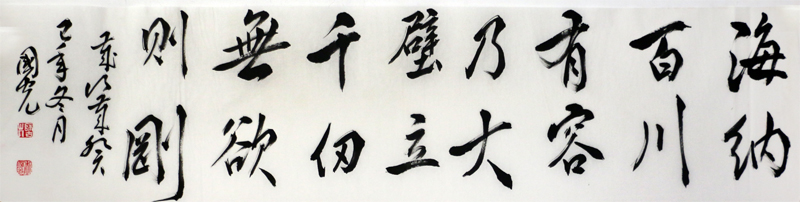 海納
百川
有容
乃大
壁立
千仞
無欲
則剛
己丑冬月